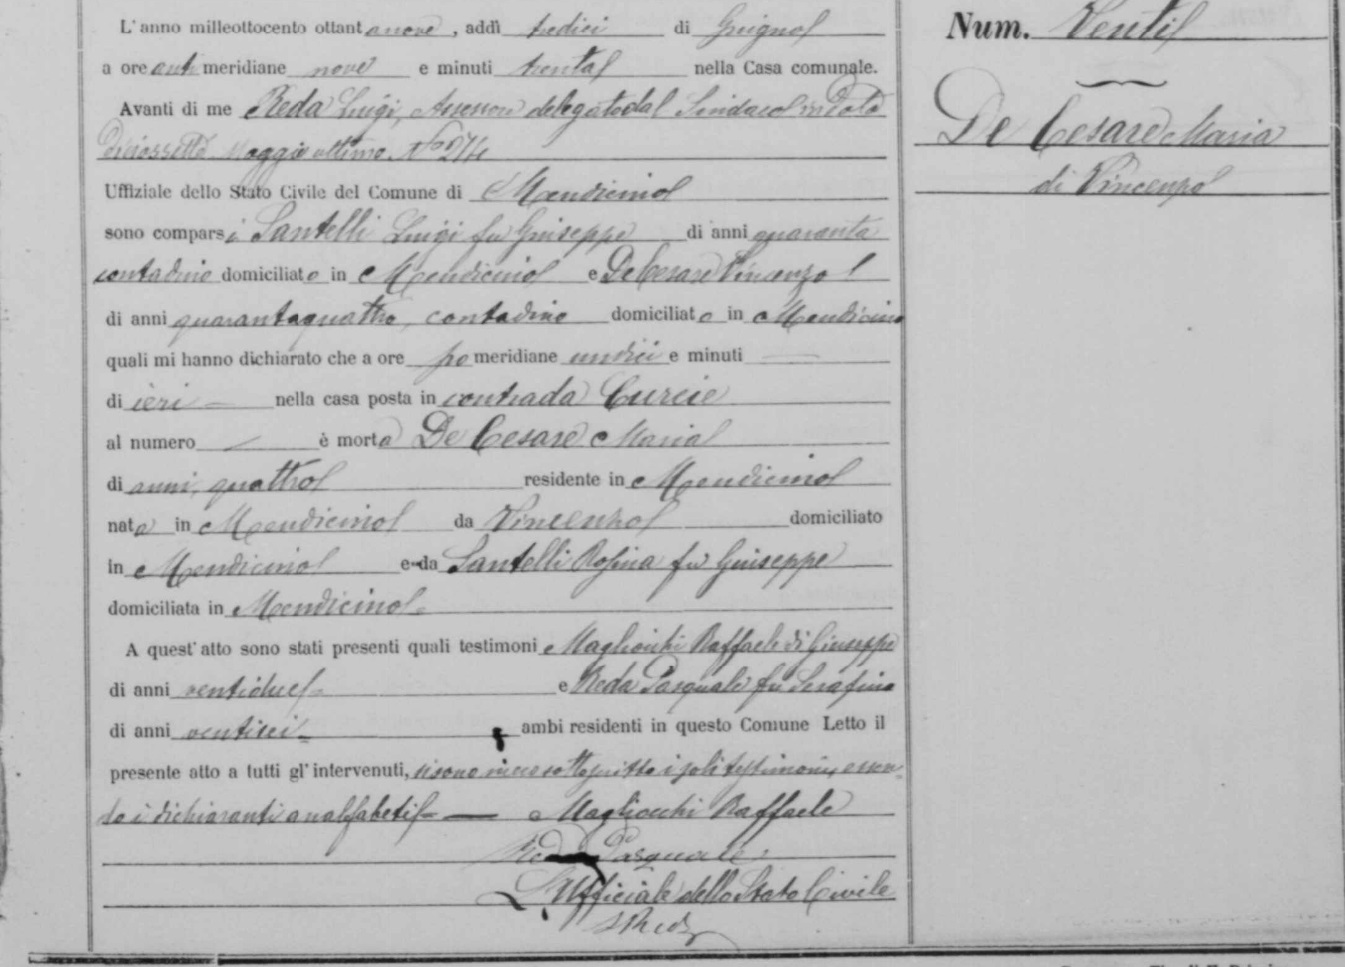 Num. Venti
De Cesare Maria
di Vincenzo
L'anno milleottocento ottantanove, addì tredici di Giugno
a ore anti meridiane nove e minuti trenta nella Casa comunale.
Avanti di me Reda Luigi, Assessore delegato dal Sindaco in data
diciassette Maggio ultimo N° 274
Uffiziale dello Stato Civile del Comune di Mendicino
sono comparsi Santelli Luigi fu Giuseppe di anni quaranta
contadino domiciliato in Mendicino e De Cesare Vincenzo
di anni quarantaquattro, contadino domiciliato in Mendicino
quali mi hanno dichiarato che a ore po meridiane undici e minuti —
di ieri — nella casa posta in contrada Curcie
al numero — è morta De Cesare Maria
di anni quattro residente in Mendicino
nata in Mendicino da Vincenzo domiciliato
in Mendicino e da Santelli Rosina fu Giuseppe
domiciliata in Mendicino
A quest'atto sono stati presenti quali testimoni Magliocchi Raffaele di Giuseppe
di anni ventidue e Reda Pasquale fu Serafino
di anni ventisei ambi residenti in questo Comune Letto il
presente atto a tutti gl'intervenuti, si sono meco sottoscritto i soli testimoni, essen-
do i dichiaranti analfabeti — Magliocchi Raffaele
Reda Pasquale
L'Ufficiale dello Stato Civile
L Reda